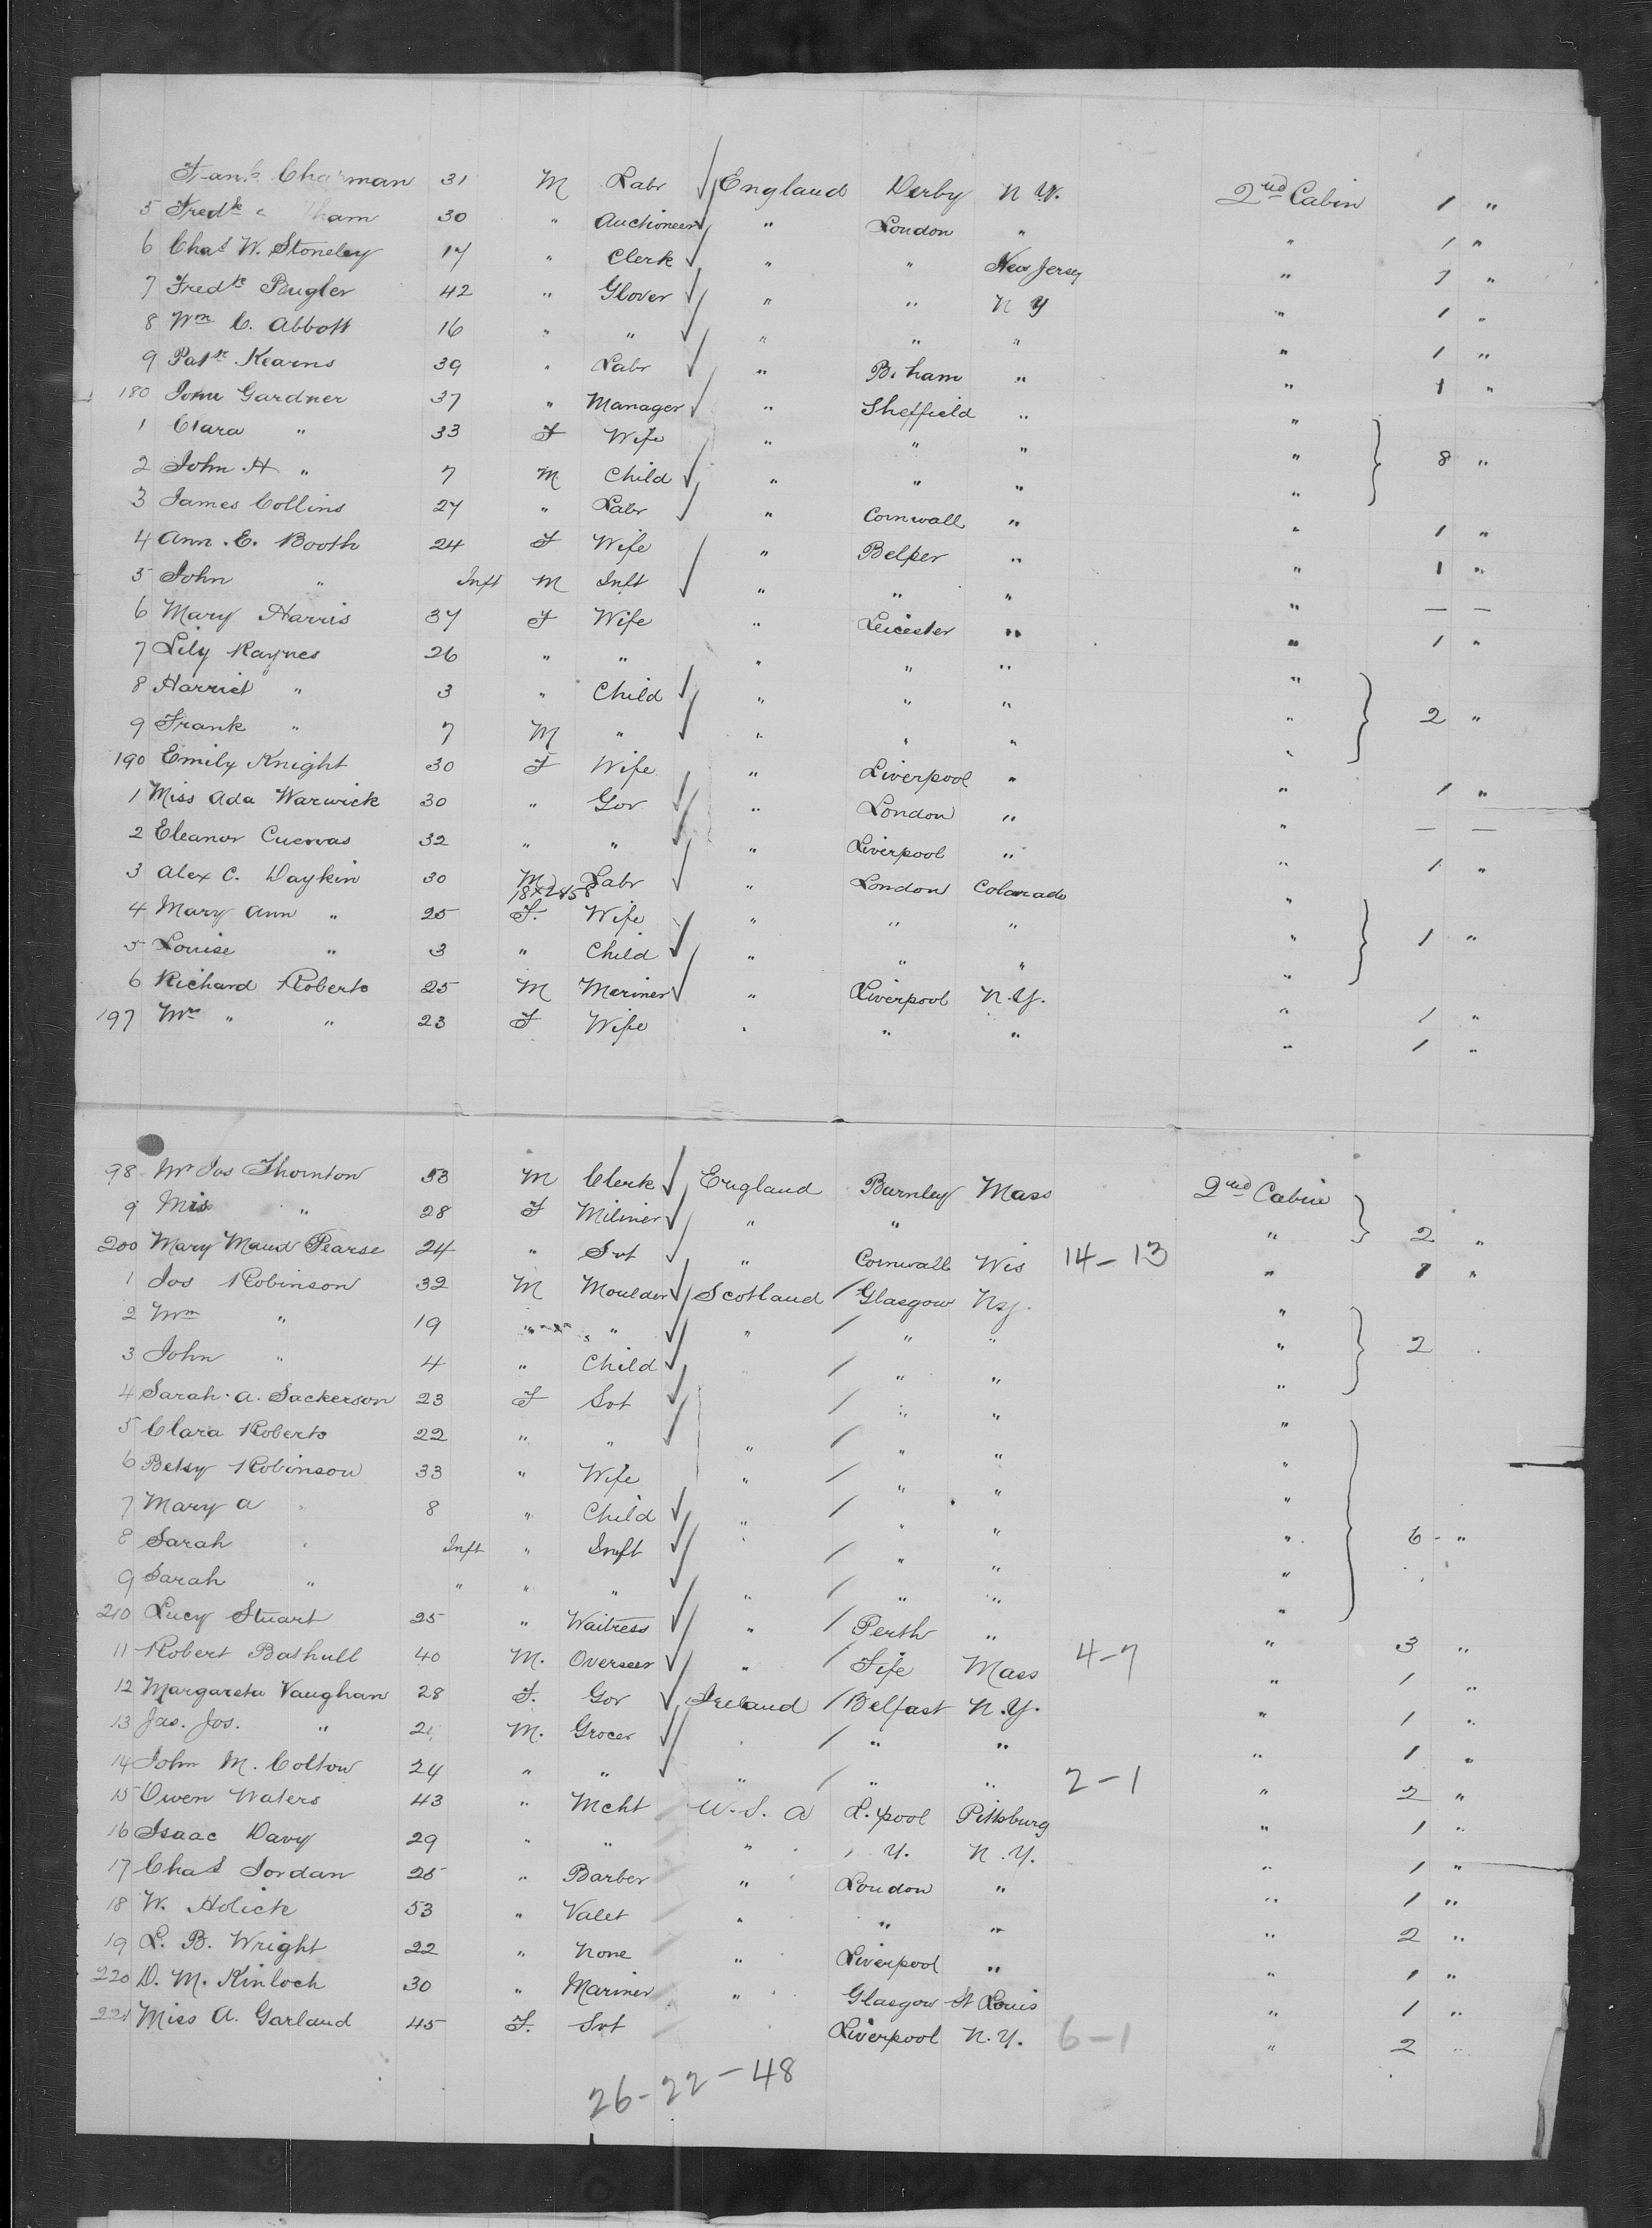 Frank Charman 31 M Labr England Derby N W. 2nd Cabin 1 "
5 Fredk ham 30 " Auctioneer " London " " 1 "
6 Chas W. Stoneley 17 " Clerk " " New Jersey " 1 "
7 Fredk Bugler 42 " Glover " " N Y " 1 "
8 Wm C. Abbott 16 " " " " " " 1 "
9 Patk Kearns 39 " Labr " B. ham " " 1 "
180 Gardner 37 " Manager " Sheffield " "
1 Clara " 33 F Wife " " " " 8 "
2 John H " 7 M Child " " " "
3 James Collins 27 " Labr " Cornwall " " 1 "
4 Ann. E. Booth 24 F Wife " Belper " " 1 "
5 John " Inft M Inft " " " " — —
6 Mary Harris 37 F Wife " Leicester " " 1 "
7 Lily Raynes 26 " " " " " "
8 Harriet " 3 " Child " " " " 2 "
9 Frank " 7 M " " " " "
190 Emily Knight 30 F Wife " Liverpool " " 1 "
1 Miss Ada Warwick 30 " Gov " London " " — —
2 Eleanor Cuervas 32 " " " Liverpool " " 1 "
3 Alex C. Daykin 30 M Labr " London Colorado "
4 Mary Ann " 25 F. Wife " " " " 1 "
5 Louise " 3 " Child " " " "
6 Richard Roberts 25 M Mariner " Liverpool N.Y. " 1 "
197 Mrs " " 23 F Wife " " " " 1 "
98 Mr Jos Thornton 53 M Clerk England Burnley Mass 2nd Cabin
9 Miss " 28 F Miliner " " " 2 "
200 Mary Maud Pearse 24 " Svt " Cornwall Wis 14-13 " 1 "
1 Jos Robinson 32 M Moulder Scotland Glasgow N.Y. "
2 Wm " 19 " " " " " " 2
3 John " 4 " Child " " "
4 Sarah. A. Sackerson 23 F Svt " " "
5 Clara Roberts 22 " " " " " "
6 Betsy Robinson 33 " Wife " " " "
7 Mary A " 8 " Child " " " " 6 - "
8 Sarah " Inft " Inft " " "
9 Sarah " " " " " " " "
210 Lucy Stuart 25 " Waitress " Perth " " 3 "
11 Robert Bathull 40 M. Overseer " Fife Mass 4-7 " 1 "
12 Margareta Vaughan 28 F. Gov Ireland Belfast N.Y. " 1 "
13 Jas. Jos. " M. Grocer " " " " 1 "
14 John M. Colton 24 " " " " " 2-1 " 2 "
15 Owen Waters 43 " Mcht U.S.A L.pool Pittsburg " 1 "
16 Isaac Davy 29 " " " Y. N.Y. " 1 "
17 Chas Jordan 25 " Barber " London " " 1 "
18 W. Holick 53 " Valet " " " " 2 "
19 L. B. Wright 22 " None " Liverpool " " 1 "
220 D. M. Kinloch 30 " Mariner " Glasgow St Louis " 1 "
221 Miss A. Garland 45 F. Svt Liverpool N.Y. 6-1 " 2 "
26-22-48